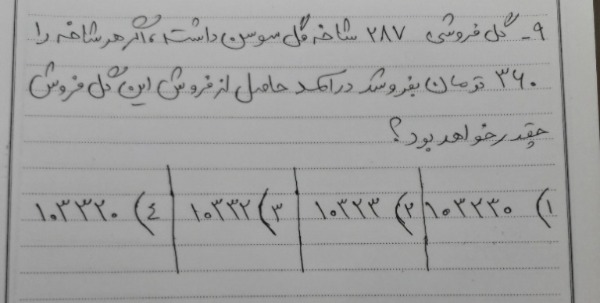 ۹- گل فروشی ۲۸۷ شاخه گل سوسن داشت، اگر هر شاخه را
۳۶۰ تومان بفروشد درآمد حاصل از فروش این گل فروش
چقدر خواهد بود؟
۱) ۱۰۳۲۳۰ ۲) ۱۰۳۲۳ ۳) ۱۰۳۳۲ ۴) ۱۰۳۳۲۰